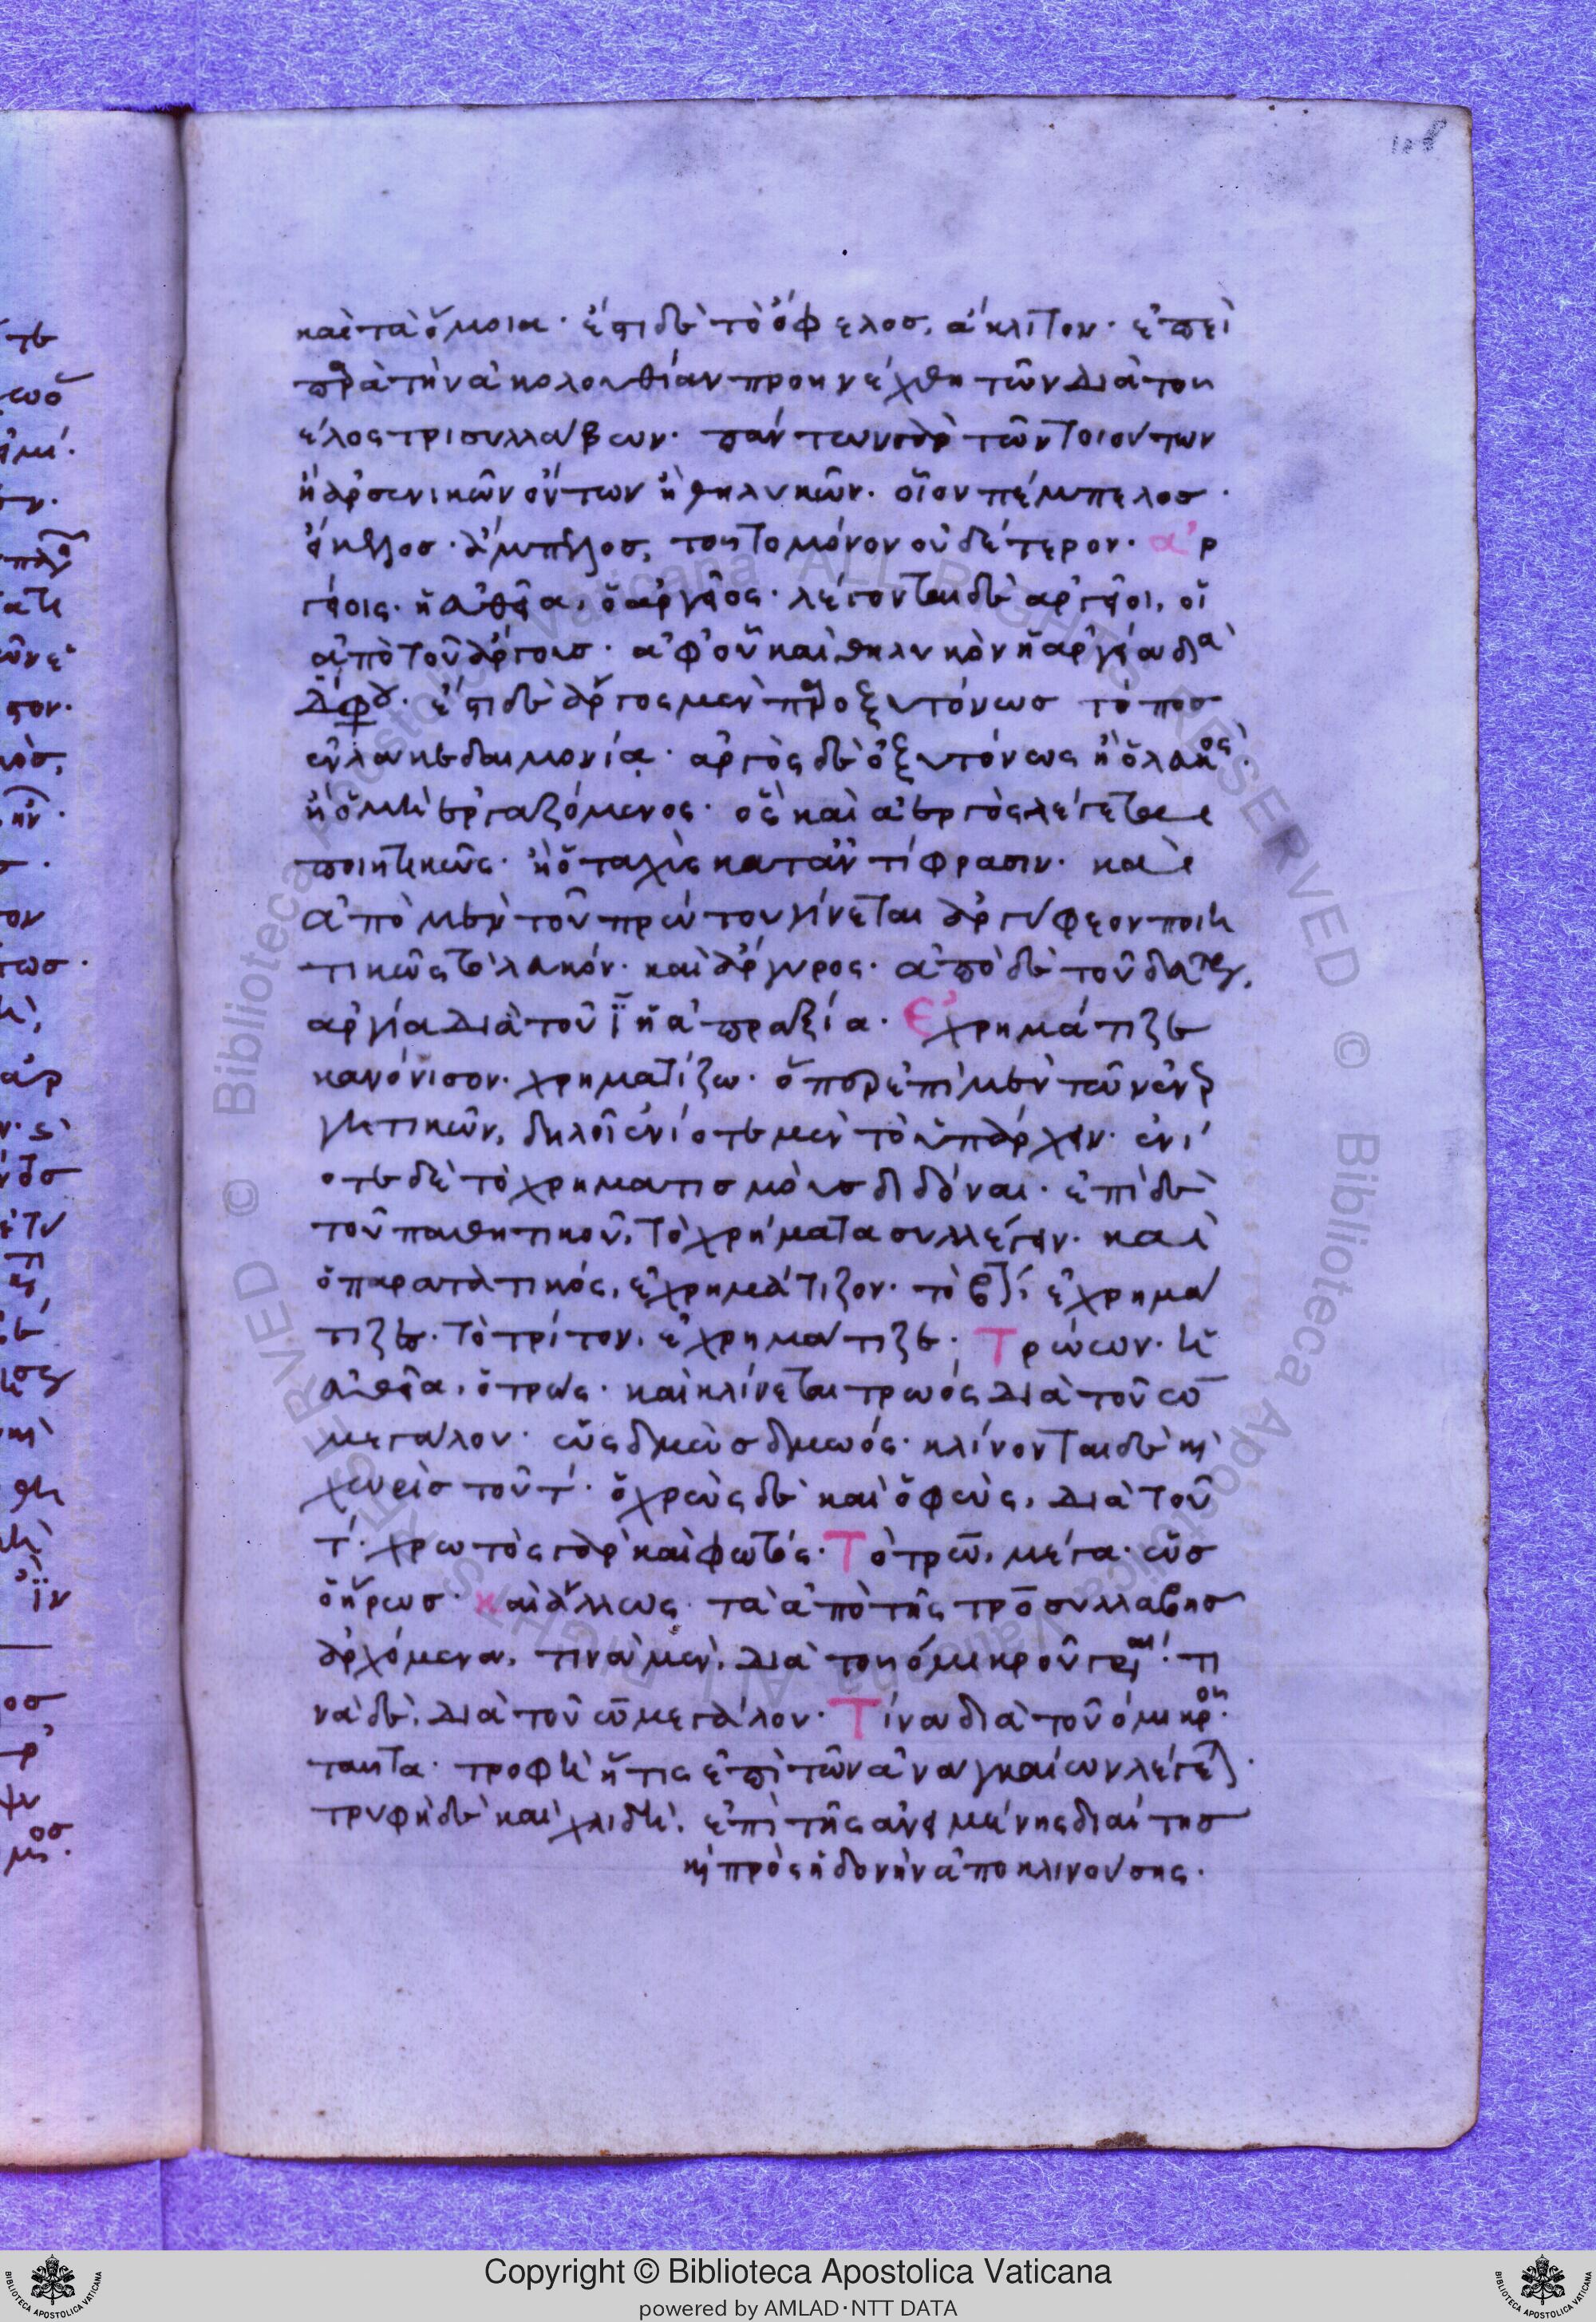 καὶ τὰ ὅμοια· ἔστι δὲ τὸ ὄφελος, ἄκλιτον· ἐπεὶ
παρὰ τὴν ἀκολουθίαν προηνέχθη τῶν διὰ του
ελος τρισυλλάβων· πάντων γὰρ τῶν τοιούτων
ἢ ἀρσενικῶν ὄντων ἢ θηλυκῶν· οἷον πέμπελος·
ἄμπελος, τοῦτο μόνον οὐδέτερον· ἀρ
γείοις· ἡ εὐθεῖα, ὁ ἀργεῖος· λέγονται δὲ ἀργεῖοι, οἱ
ἀπὸ τοῦ ἄργους· ἀφ' οὗ καὶ θηλυκὸν ἡ ἀργεία διὰ
διφθ· ἔστι δὲ ἄργος μὲν παροξυτόνως τόπος
ἐν λακεδαιμονίᾳ· ἀργὸς δὲ ὀξυτόνως ἢ ὁ λευκός·
ἢ ὁ μὴ ἐργαζόμενος· ὃς καὶ ἀεργὸς λέγεται
ποιητικῶς· ἢ ὁ ταχὺς κατ' ἀντίφρασιν· καὶ
ἀπὸ μὲν τοῦ πρώτου γίνεται ἀργύφεον ποιη
τικῶς τὸ λευκόν· καὶ ἄργυρος· ἀπὸ δὲ τοῦ δευτέρου,
ἀργία διὰ τοῦ ϊ ἡ ἀπραξία· Ἐχρημάτιζε
κανόνισον· χρηματίζω· ὅπερ ἐπὶ μὲν τῶν ἐνερ
γητικῶν, δηλοῖ ἐνίοτε μὲν τὸ ὑπάρχειν· ἐνί
οτε δὲ τὸ χρηματισμοὺς διδόναι· ἐπὶ δὲ
τοῦ παθητικοῦ, τὸ χρήματα συλλέγειν· καὶ
ὁ παρατατικός, ἐχρημάτιζον· τὸ βʹ, ἐχρημά
τιζες· τὸ τρίτον, ἐχρημάτιζε· Τρώων· ἡ
εὐθεῖα, ὁ τρώς· καὶ κλίνεται τρωός διὰ τοῦ ω
μεγάλου· ὡς δμὼς δμωός· κλίνονται δὲ καὶ
χωρὶς τοῦ τ· ὁ χρὼς δὲ καὶ ὁ φώς, διὰ τοῦ
τ· χρωτὸς γὰρ καὶ φωτός· Τὸ τρω, μέγα· ὡς
ὁ ἥρως· καὶ ἄλλως· τὰ ἀπὸ τῆς τρο συλλαβῆς
ἀρχόμενα, τινὰ μὲν, διὰ τοῦ ὀμικροῦ γράφεται· τι
νὰ δὲ, διὰ τοῦ ω μεγάλου· Τίνα διὰ τοῦ ὀμικροῦ·
ταῦτα· τροφὴ ἥτις ἐπὶ τῶν ἀναγκαίων λέγεται·
τρυφὴ δὲ καὶ χλιδὴ, ἐπὶ τῆς ἀνειμένης διαίτης
καὶ πρὸς ἡδονὴν ἀποκλινούσης·
Copyright © Biblioteca Apostolica Vaticana
powered by AMLAD·NTT DATA